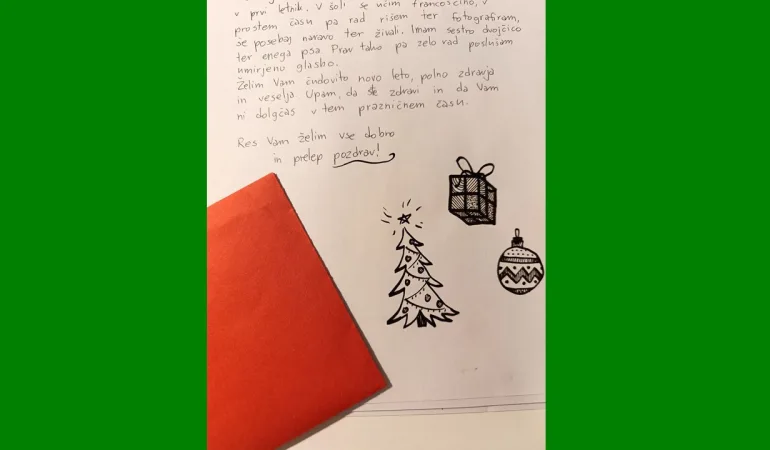 v prvi letnik. V šoli se učim francoščino, v
prostem času pa rad rišem ter fotografiram,
še posebaj naravo ter živali. Imam sestro dvojčico
ter enega psa Prav tako pa zelo rad poslušam
umirjeno glasbo.
Želim Vam čudovito novo leto, polno zdravja
in veselja Upam, da ste zdravi in da Vam
ni dolgčas v tem prazničnem času.
Res Vam želim vse dobro
in prelep pozdrav!